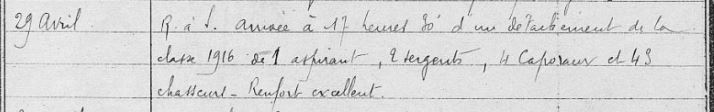 29 Avril. R. à S. Arrivée à 17 heures 30 d'un detachement de la
classe 1916 de 1 aspirant, 2 sergents, 4 Caporaux et 43
chasseurs - Renfort excellent.